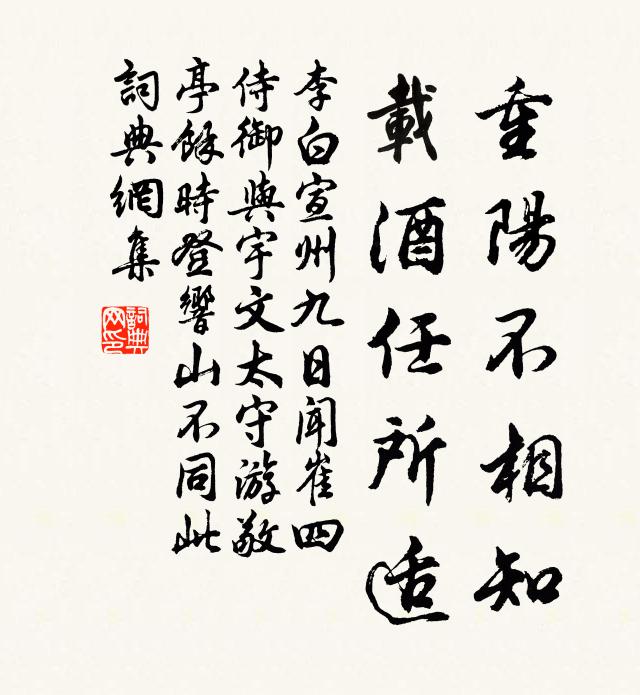 重陽不相知
載酒任所適
李白宣州九日聞崔四
侍御與宇文太守游敬
亭餘時登響山不同此
詞典網集
詞典
网印